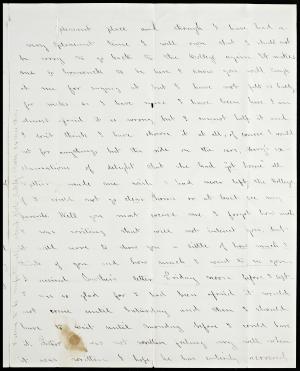 pleasant place and though I have had a
very pleasant time I will own that I shall not
be sorry to go back to the College again. It makes
me so homesick to be here I know you will laugh
at me for saying it but I have not felt as bad
for weeks as I have since I have been here I am
almost afraid it is wrong but I cannot help it and
I don't think I have shown it at all, of course I would
not for anything but the ride on the cars, 
of delight that she had "got home" all
together made me wish I had never left the College
if I could not go clear home or at least see my
Well you must excuse me I forgot how
I was writing that will not interest you but
it will serve to show you a little of how much I
think of you and how much I want to see you.
I received letter Friday noon before I left
I was so glad for I had been afraid it would
not come until Saturday and then I should
have to wait until Monday before I could have
it. was not feeling very well when
it was written I hope he has entirely recovered